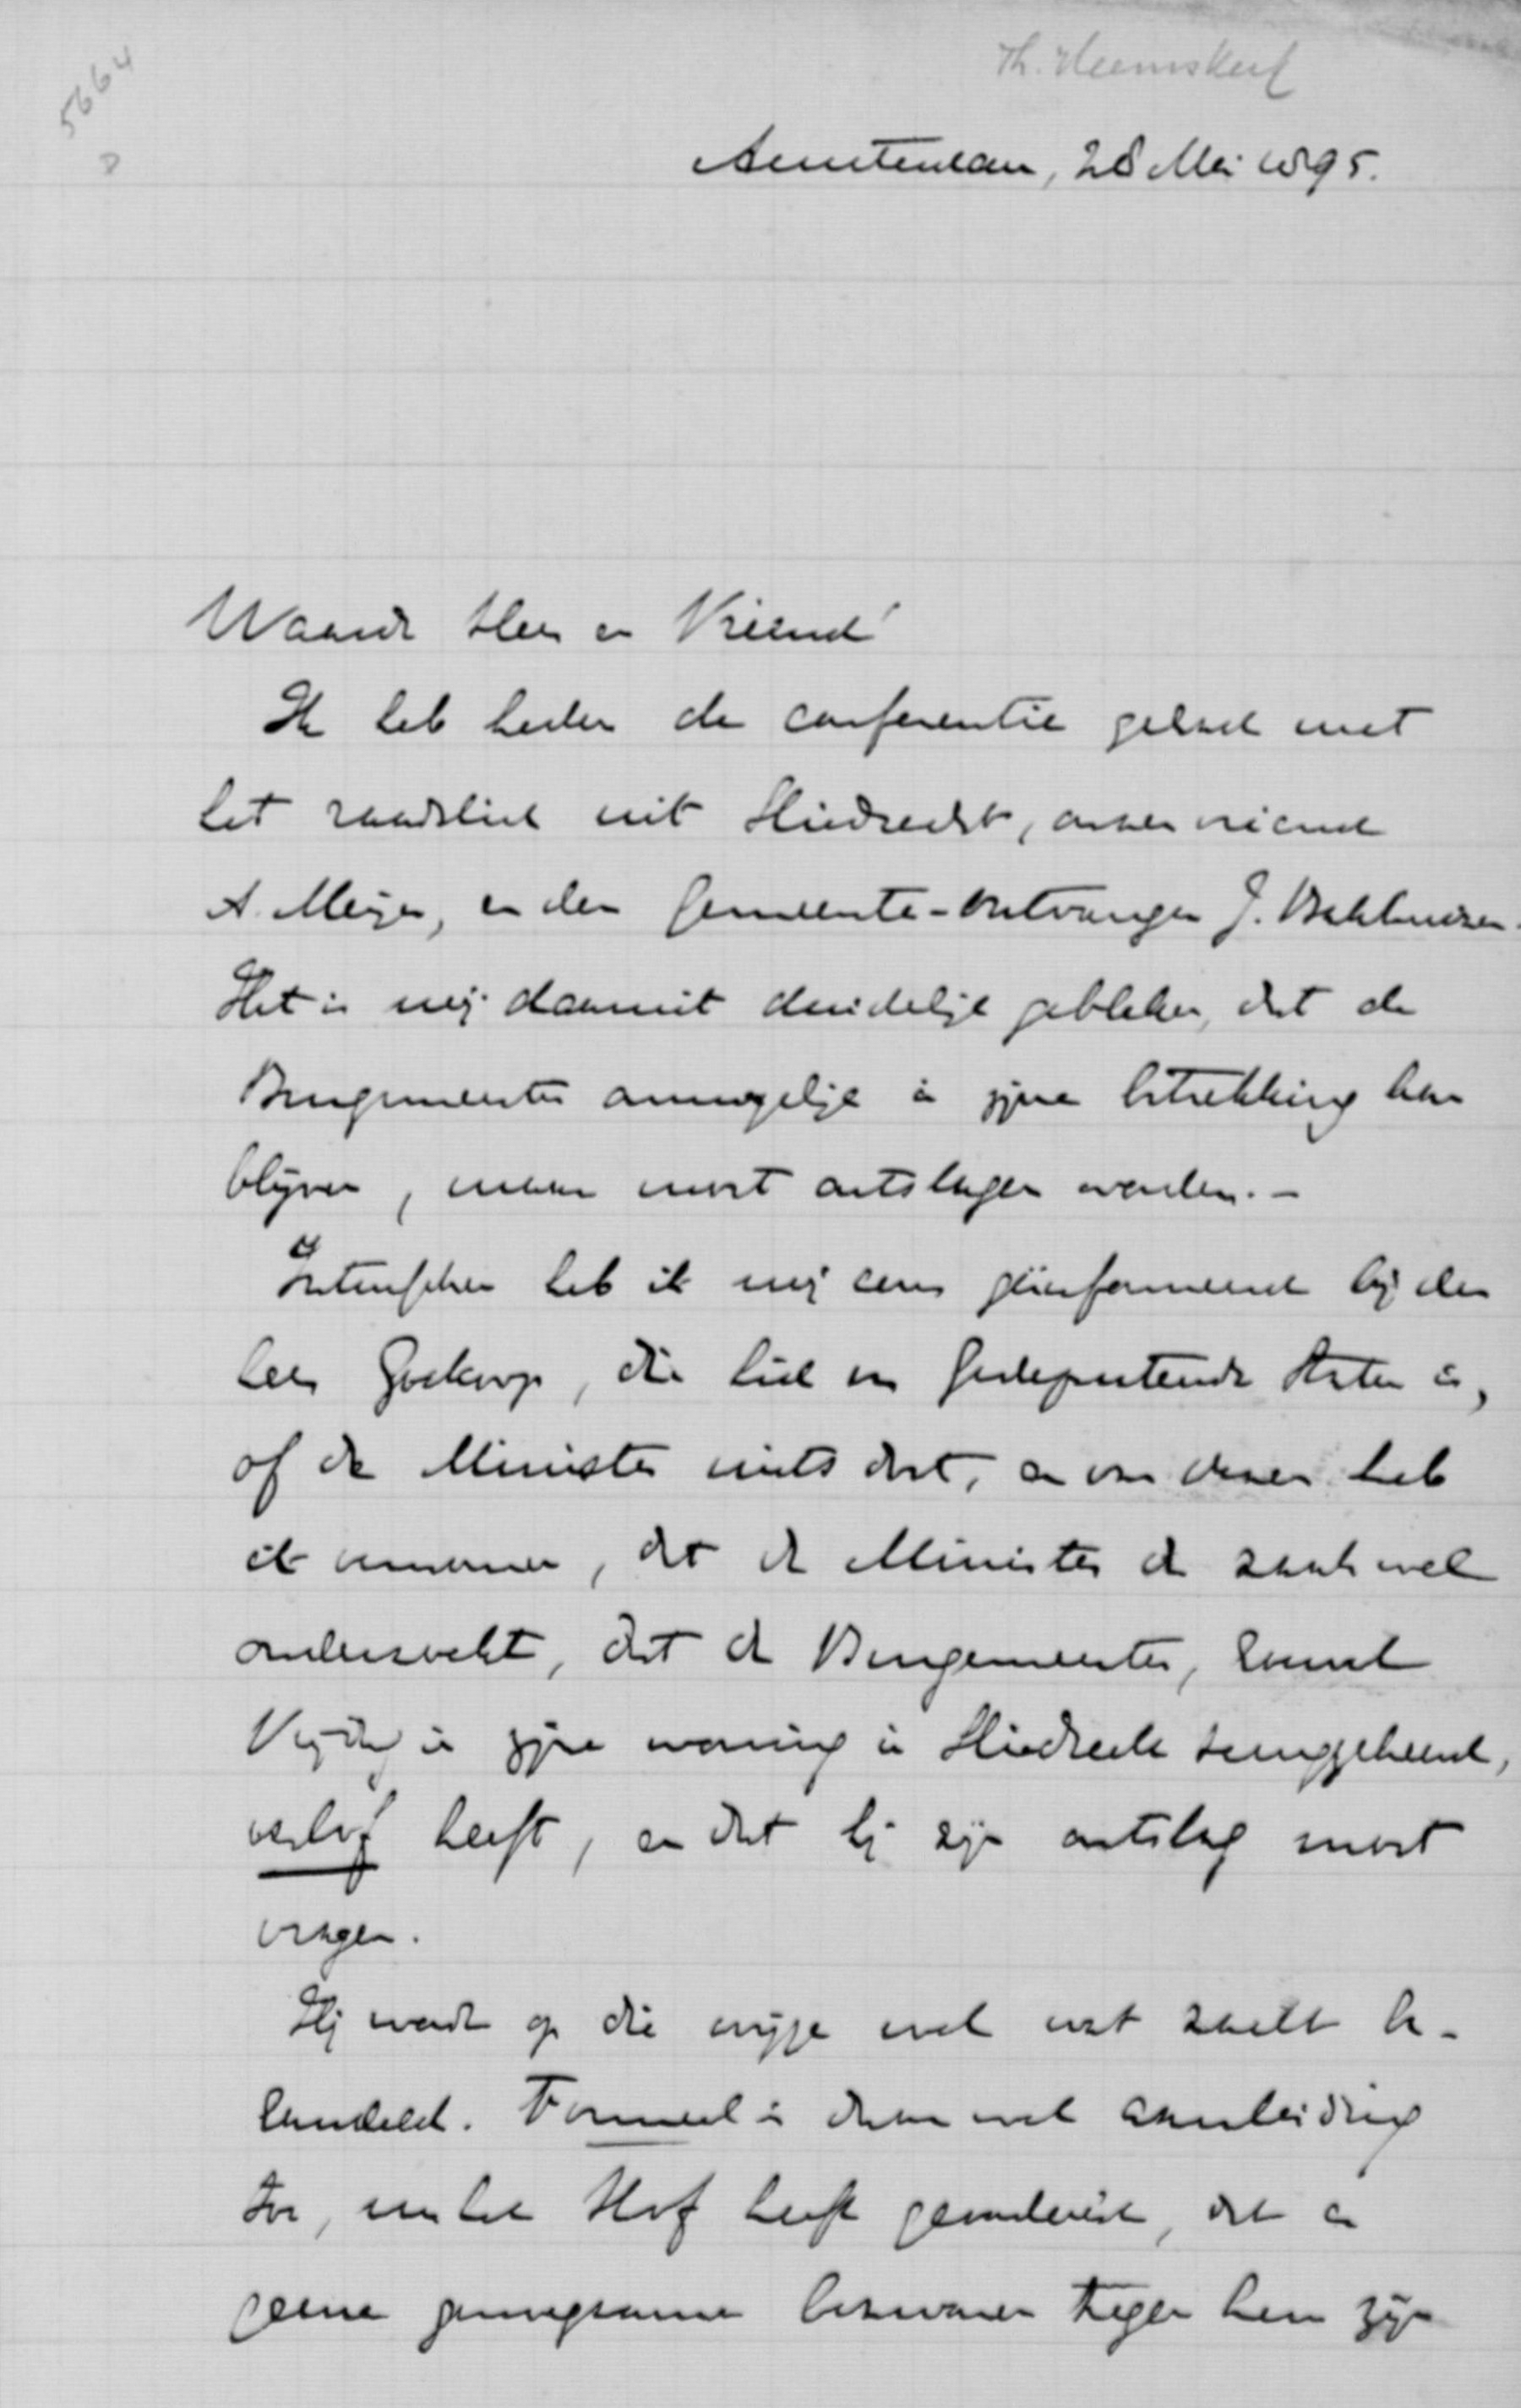 5664
D
Th. Heemskerk
Amsterdam, 28 Mei 1895.
Waarde Heer en Vriend!
Ik heb heden de conferentie gehad met
het raadslid uit Sliedrecht, onzen vriend
A. Meijer, en den Gemeente-Ontvanger J. Bakhuizen.
Het is mij daaruit duidelijk gebleken, dat de
Burgemeester onmogelijk in zijne betrekking kan
blijven, maar moet ontslagen worden. -
Intusschen heb ik mij eens geïnformeerd bij den
heer Goekoop, die lid van Gedeputeerde Staten is,
of de Minister iets doet, en van dezen heb
ik vernomen, dat de Minister de zaak wel
onderzoekt, dat de Burgemeester, sinds
Vrijdag in zijne woning in Sliedrecht teruggekeerd,
verlof heeft, en dat hij zijn ontslag moet
vragen.
Hij wordt op die wijze wel wat zacht be-
handeld. Formeel is daar wel aanleiding
toe, nu het Hof heeft geoordeeld, dat er
geene genoegzame bezwaren tegen hem zijn